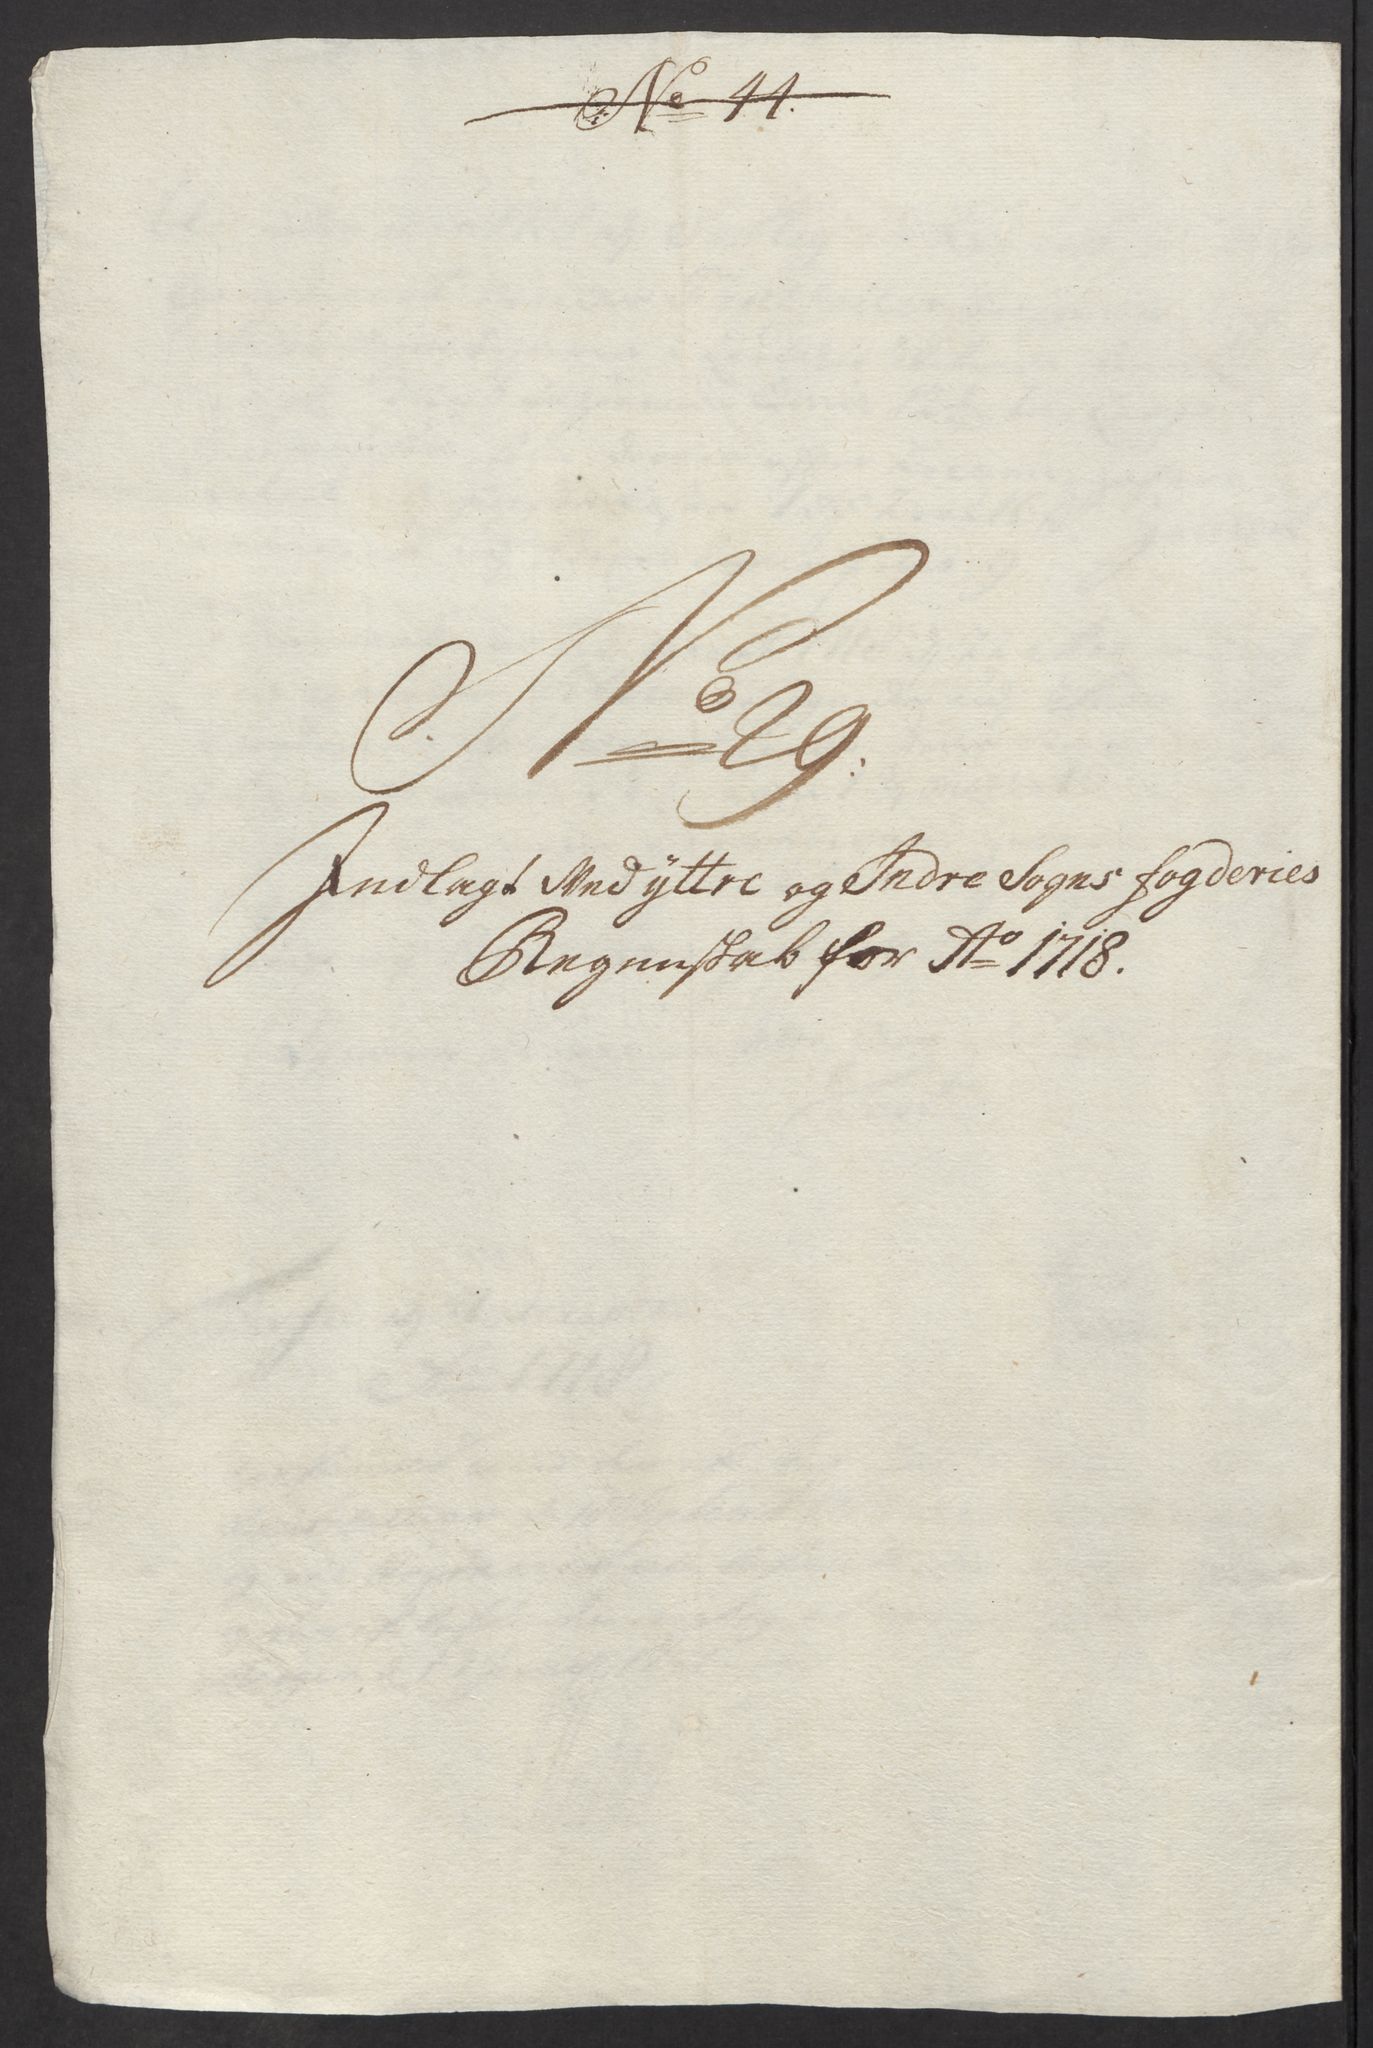 No 44.
No 29.
Indlagt Med ÿttre og Indre Sogns fogderies
Regenskab for Ao 1718.